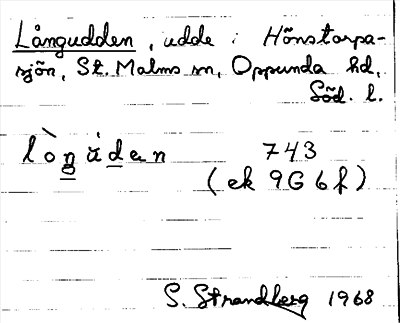 Långudden, udde i Hönstorpa-
sjön, St. Malms sn, Oppunda hd,
Söd. l.
lòngùden 743
(ek 9G 6f)
S. Strandberg 1968